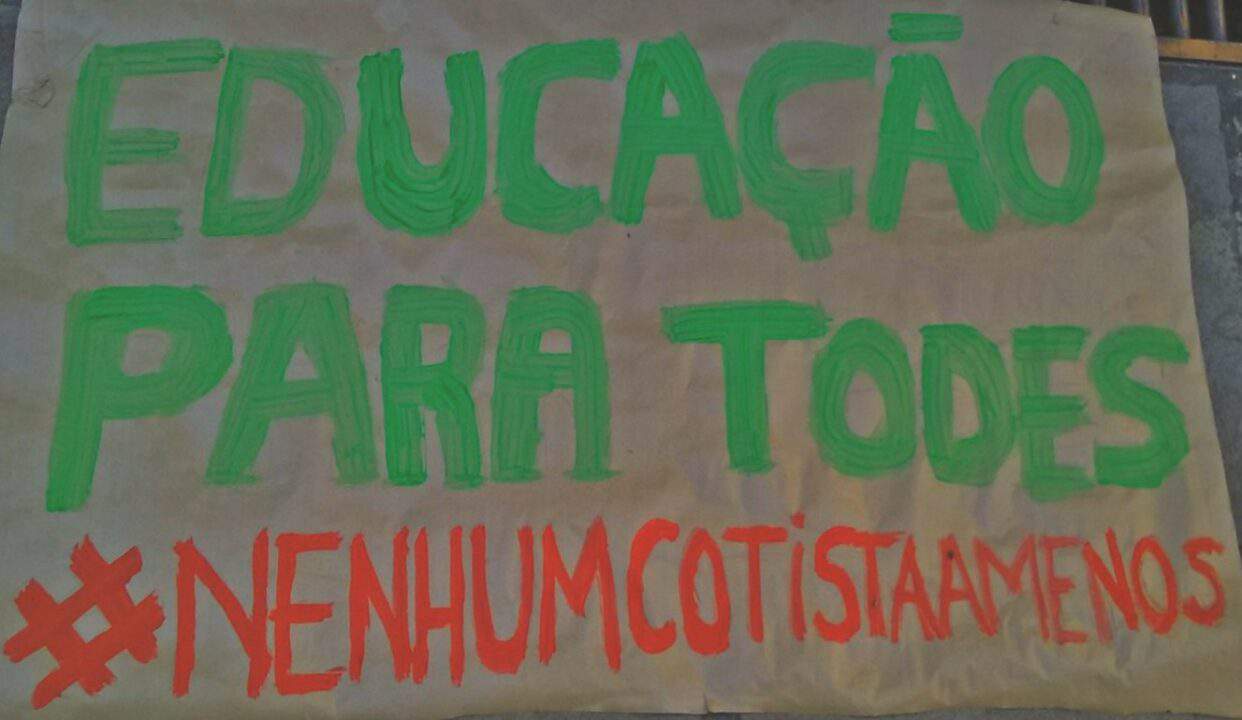 EDUCAÇÃO
PARA TODES
#NENHUMCOTiSTAAMENOS